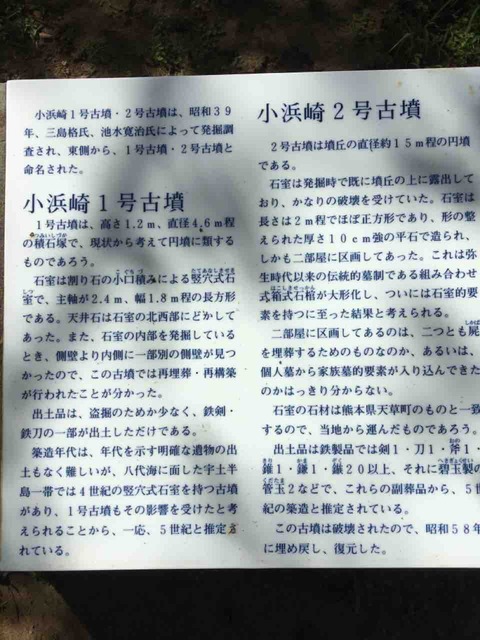 小浜崎1号古墳・2号古墳は、昭和39
年、三島格氏、池水寛治氏によって発掘調
査され、東側から、1号古墳・2号古墳と
命名された。
小浜崎1号古墳
1号古墳は、高さ1.2m、直径4.6m程
の積石塚で、現状から考えて円墳に類する
ものであろう。
石室は割り石の小口積みによる竪穴式石
室で、主軸が2.4m、幅1.8m程の長方形
である。天井石は石室の北西部にどかして
あった。また、石室の内部を発掘している
とき、側壁より内側に一部別の側壁が見つ
かったので、この古墳では再埋葬・再構築
が行われたことが分かった。
出土品は、盗掘のためか少なく、鉄剣・
鉄刀の一部が出土しただけである。
築造年代は、年代を示す明確な遺物の出
土もなく難しいが、八代海に面した宇土半
島一帯では4世紀の竪穴式石室を持つ古墳
があり、1号古墳もその影響を受けたと考
えられることから、一応、5世紀と推定さ
れている。
小浜崎2号古墳
2号古墳は墳丘の直径約15m程の円墳
である。
石室は発掘時で既に墳丘の上に露出して
おり、かなりの破壊を受けていた。石室は
長さは2m程でほぼ正方形であり、形の整
えられた厚さ10cm強の平石で造られ、
しかも二部屋に区画してあった。これは弥
生時代以来の伝統的墓制である組み合わせ
式箱式石棺が大形化し、ついには石室的要
素を持つに至った結果と考えられる。
二部屋に区画してあるのは、二つとも屍
を埋葬するためのものなのか、あるいは、
個人墓から家族墓的要素が入り込んできた
のかはっきり分からない。
石室の石材は熊本県天草町のものと一致
するので、当地から運んだものであろう。
出土品は鉄製品では剣1・刀1・斧1・
鎌1・鏃20以上、それに碧玉製の
管玉2などで、これらの副葬品から、5世
紀の築造と推定されている。
この古墳は破壊されたので、昭和58年
に埋め戻し、復元した。